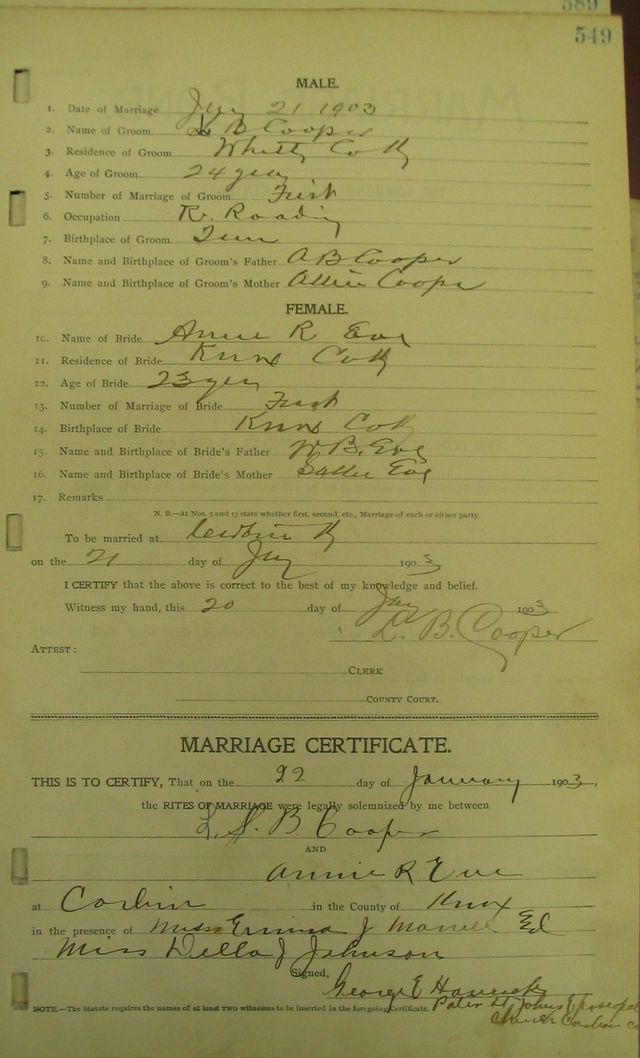 589
549
MALE.
1. Date of Marriage Jany 21 1903
2. Name of Groom L B Cooper
3. Residence of Groom Whitly Co Ky
4. Age of Groom 24 years
5. Number of Marriage of Groom First
6. Occupation R. Roading
7. Birthplace of Groom Tenn
8. Name and Birthplace of Groom's Father A B Cooper
9. Name and Birthplace of Groom's Mother Allie Cooper
FEMALE.
10. Name of Bride Annie R Eve
11. Residence of Bride Knox Co Ky
12. Age of Bride 23 years
13. Number of Marriage of Bride First
14. Birthplace of Bride Knox Co Ky
15. Name and Birthplace of Bride's Father W B. Eve
16. Name and Birthplace of Bride's Mother Sallie Eve
17. Remarks
N. B.—At Nos. 5 and 13 state whether first, second, etc., Marriage of each or either party.
To be married at Corbin Ky
on the 21 day of Jany 1903
I CERTIFY that the above is correct to the best of my knowledge and belief.
Witness my hand, this 20 day of Jany 1903
L. B. Cooper
ATTEST:
CLERK
COUNTY COURT.
MARRIAGE CERTIFICATE.
THIS IS TO CERTIFY, That on the 22 day of January 1903,
the RITES OF MARRIAGE were legally solemnized by me between
L. B. Cooper
AND
Annie R Eve
at Corbin in the County of Knox
in the presence of Miss Emma J Ed
Miss Della J Johnson
Signed,
George E Hancock
NOTE.—The Statute requires the names of at least two witnesses to be inserted in the foregoing Certificate. St Johns Episcopal
Church Corbin